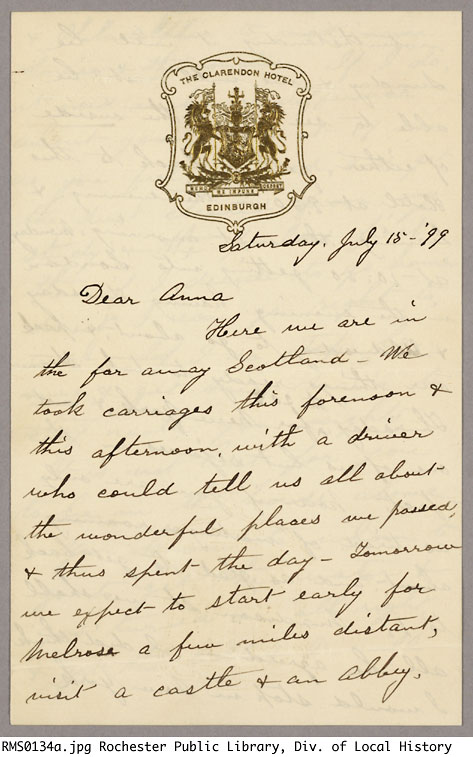 THE CLARENDON HOTEL
NEMO ME IMPUNE
EDINBURGH
Saturday, July 15 - '99
Dear Anna
Here we are in
the far away Scotland - We
took carriages this forenoon &
this afternoon, with a driver
who could tell us all about
the wonderful places we passed,
& thus spent the day - Tomorrow
we expect to start early for
Melrose a few miles distant,
visit a castle & an Abbey,
RMS0134a.jpg Rochester Public Library, Div. of Local History